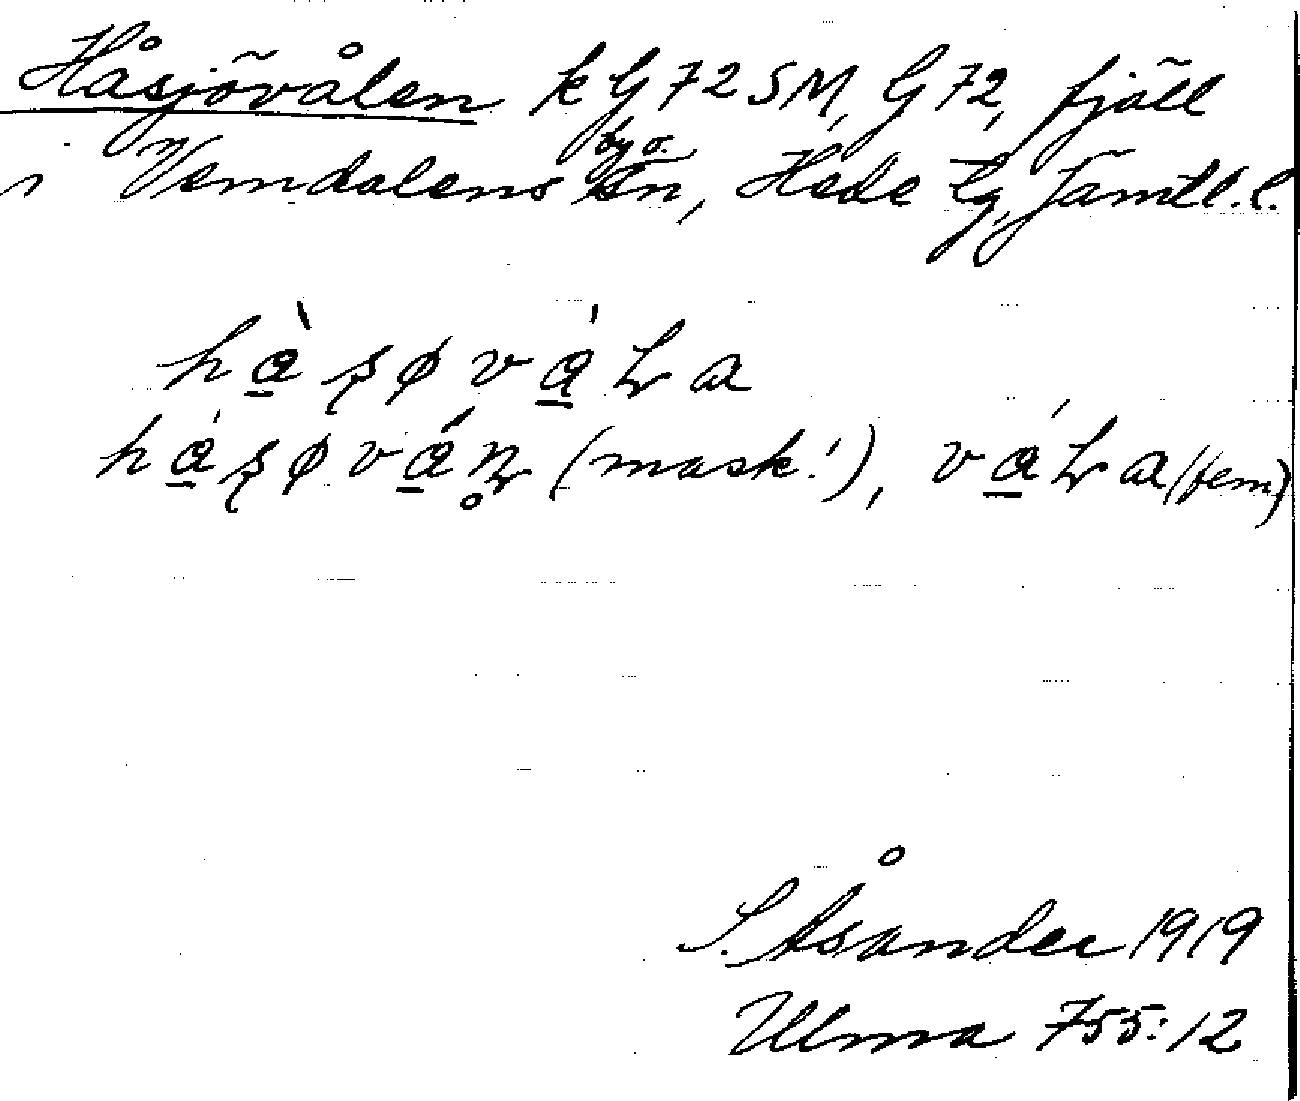 Håsjövålen k G72SM, G72, fjäll
i Vemdalens by o. sn, Hede tg, Jämtl. l.
hà̱ʂøvá̱ɽa
há̱ʂøvá̱ɳ̥ (mask!), vá̱ɽa (fem)
S. Åsander 1919
Ulma 755:12